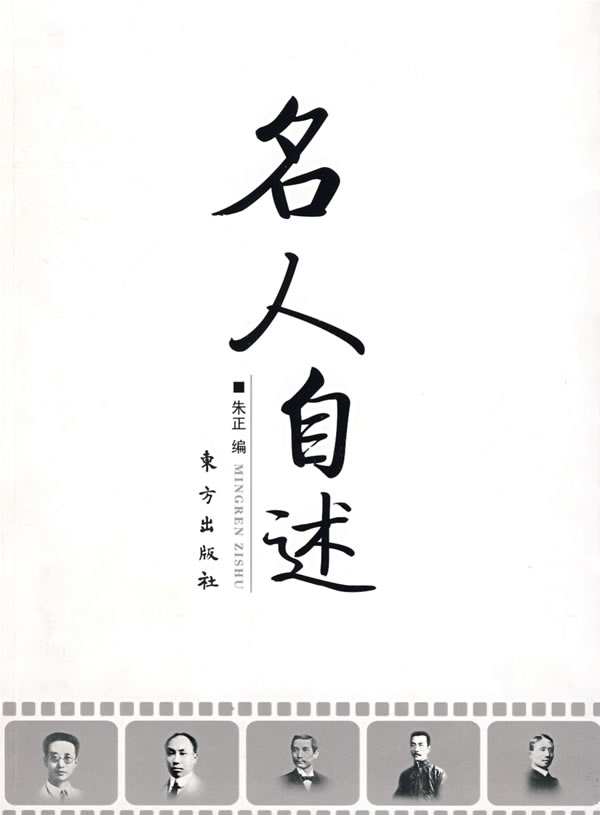 名人自述
■ 朱正 编
MINGREN ZISHU
東方出版社